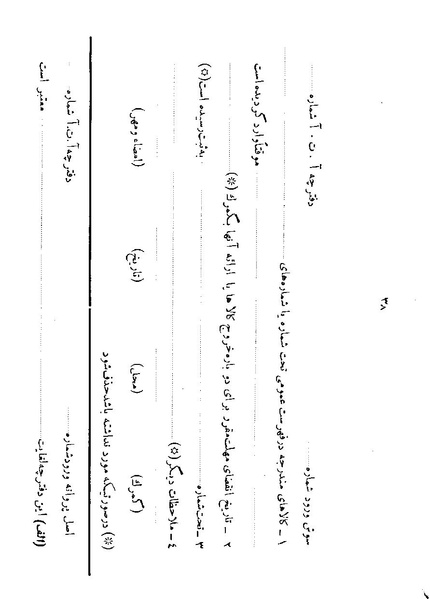 ۳۸
سوش ورود شماره ........ دفترچه آ . ت . آ شماره ........
۱ ـ کالاهای مندرجه در فهرست عمومی تحت شماره یا شماره‌های ........
........ موقتاً وارد گردیده است
۲ ـ تاریخ انقضای مهلت مقرر برای دوباره خروج کالاها با ارائه آنها بگمرک (※)
۳ ـ تحت شماره ........ به ثبت رسیده است (※)
۴ ـ ملاحظات دیگر (※)
(گمرک) (محل) (تاریخ) (امضاء و مهر)
(※) در صورتیکه مورد نداشته باشد حذف شود
اصل پروانه ورود شماره ........ دفترچه آ.ت.آ شماره ........
(الف) این دفترچه لغایت ........ معتبر است